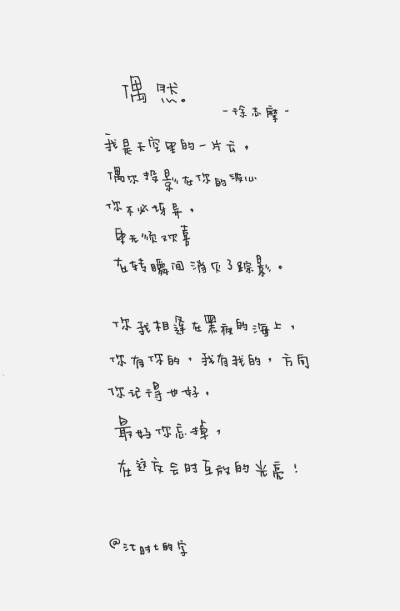 偶然。
-徐志摩-
我是天空里的一片云，
偶尔投影在你的波心
你不必讶异，
更无须欢喜
在转瞬间消灭了踪影。
你我相逢在黑夜的海上，
你有你的，我有我的，方向
你记得也好，
最好你忘掉，
在这交会时互放的光亮！